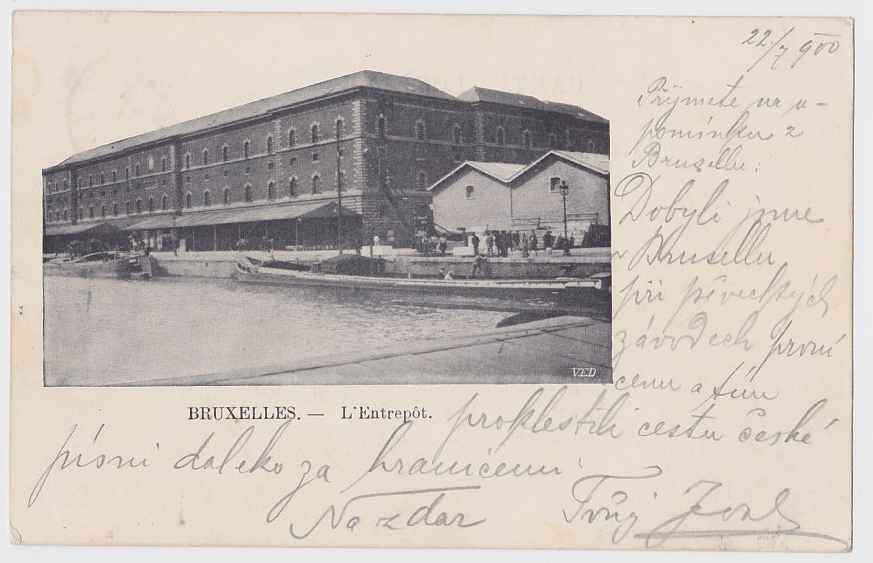 22/7 900
Přijmete na u-
pomínku z
Bruselu:
Dobyli jsme
v Bruselu
při pěveckých
závodech první
cenu a tím
BRUXELLES. — L'Entrepôt.
proklestili cestu české
písni daleko za hranicemi
Na zdar Tvůj
VED